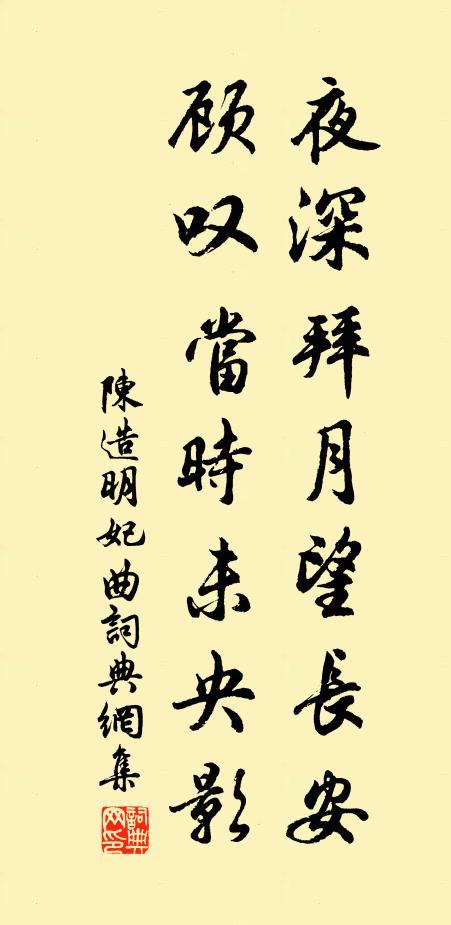 夜深拜月望長安
顧叹當時未央影
陳造明妃曲詞典網集
詞典網印